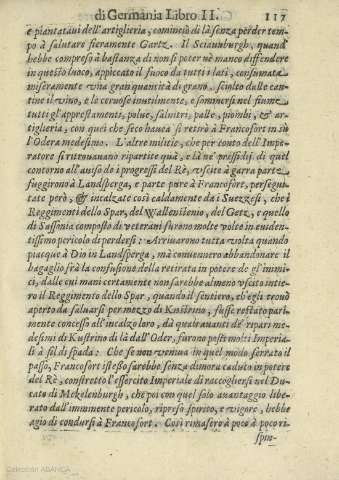 di Germania Libro II. 117
e piantataui dell'artiglieria, cominciò di là senza perder tem-
po à salutare fieramente Gartz. Il Sciauuburgh, quand
hebbe compreso à bastanza di non si poter ne manco diffendere
in questo luoco, appiccato il fuoco da tutti i lati, consumata
miseramente una gran quantità di grano, sciolto dalle can-
tine il vino, e la ceruosa inutilmente, e sommersi nel fiume
tutti gl'apprestamenti, polue, salnitri, palle, piombi, & ar-
tiglieria, con quei che seco hauea si retirò à Francofort in sù
l'Odera medesimo. L'altre militie, che per conto dell'Impe-
ratore si ritrouauano ripartite quà, e là ne' pressidij di quel
contorno all'auiso de i progressi del Rè, vscite à garra parte
fuggirono à Landsperga, e parte pure à Francofort, persegui-
tate però, & incalzate così caldamente da i Suezzesi, che i
Reggimenti dello Spar, del Wallenstenio, del Getz, e quello
di Sassonia composto di veterani furono molte volte in euiden-
tissimo pericolo di perdersi: Arriuarono tutta volta quando
piacque à Dio in Landsperga, mà conuennero abbandonare il
bagaglio frà la confusione della retirata in potere de gl'inimi-
ci, dalle cui mani certamente non sarebbe almeno vscito intie-
ro il Reggimento dello Spar, quando il sentiero, ch'egli trouò
aperto da saluarsi per mezzo di Kustrino, fusse restato pari-
mente concesso all'incalzo loro, dà quatrauanti de' ripari me-
desimi di Kustrino di là dall'Oder, furono posti molti Imperia-
li à fil di spada. Che se non veniua in quel modo serrato il
passo, Francofort istesso sarebbe senza dimora caduto in potere
del Rè, constretto l'essercito Imperiale di raccogliersi nel Du-
cato di Mekelenburgh, che poi con quel solo auantaggio libe-
rato dall'imminente pericolo, ripreso spirito, e vigore, hebbe
agio di condursi à Francofort. Così rimasero à poco à poco ri-
spin-
Colección ABANCA